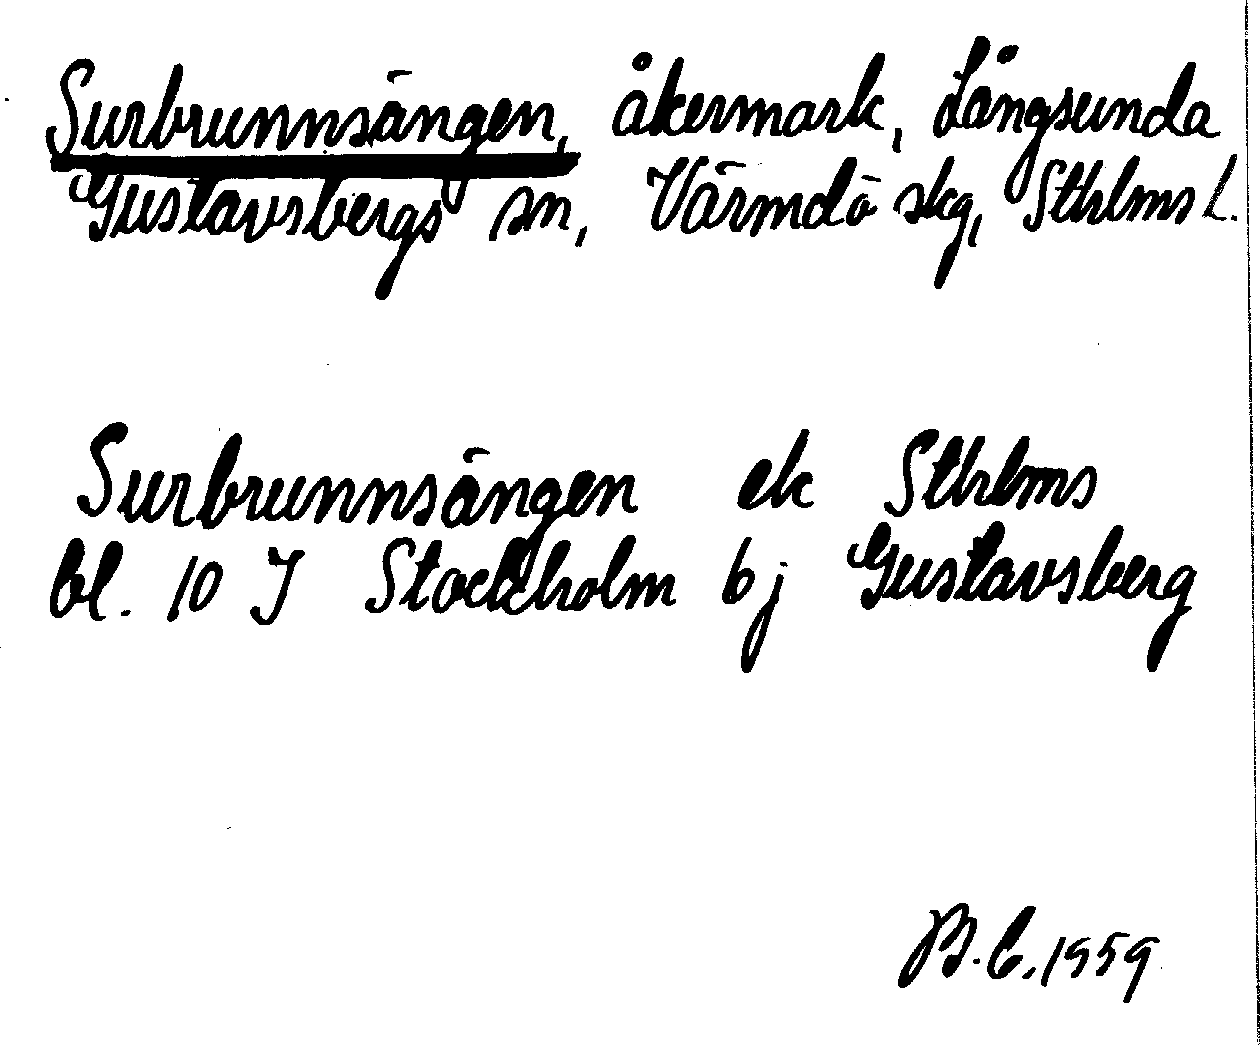 Surbrunnsängen, åkermark, Långsunda
Gustavsbergs sn, Värmdö skg, Sthlms l.
Surbrunnsängen ek Sthlms
bl. 10 I Stockholm 6j Gustavsberg
B.C. 1959